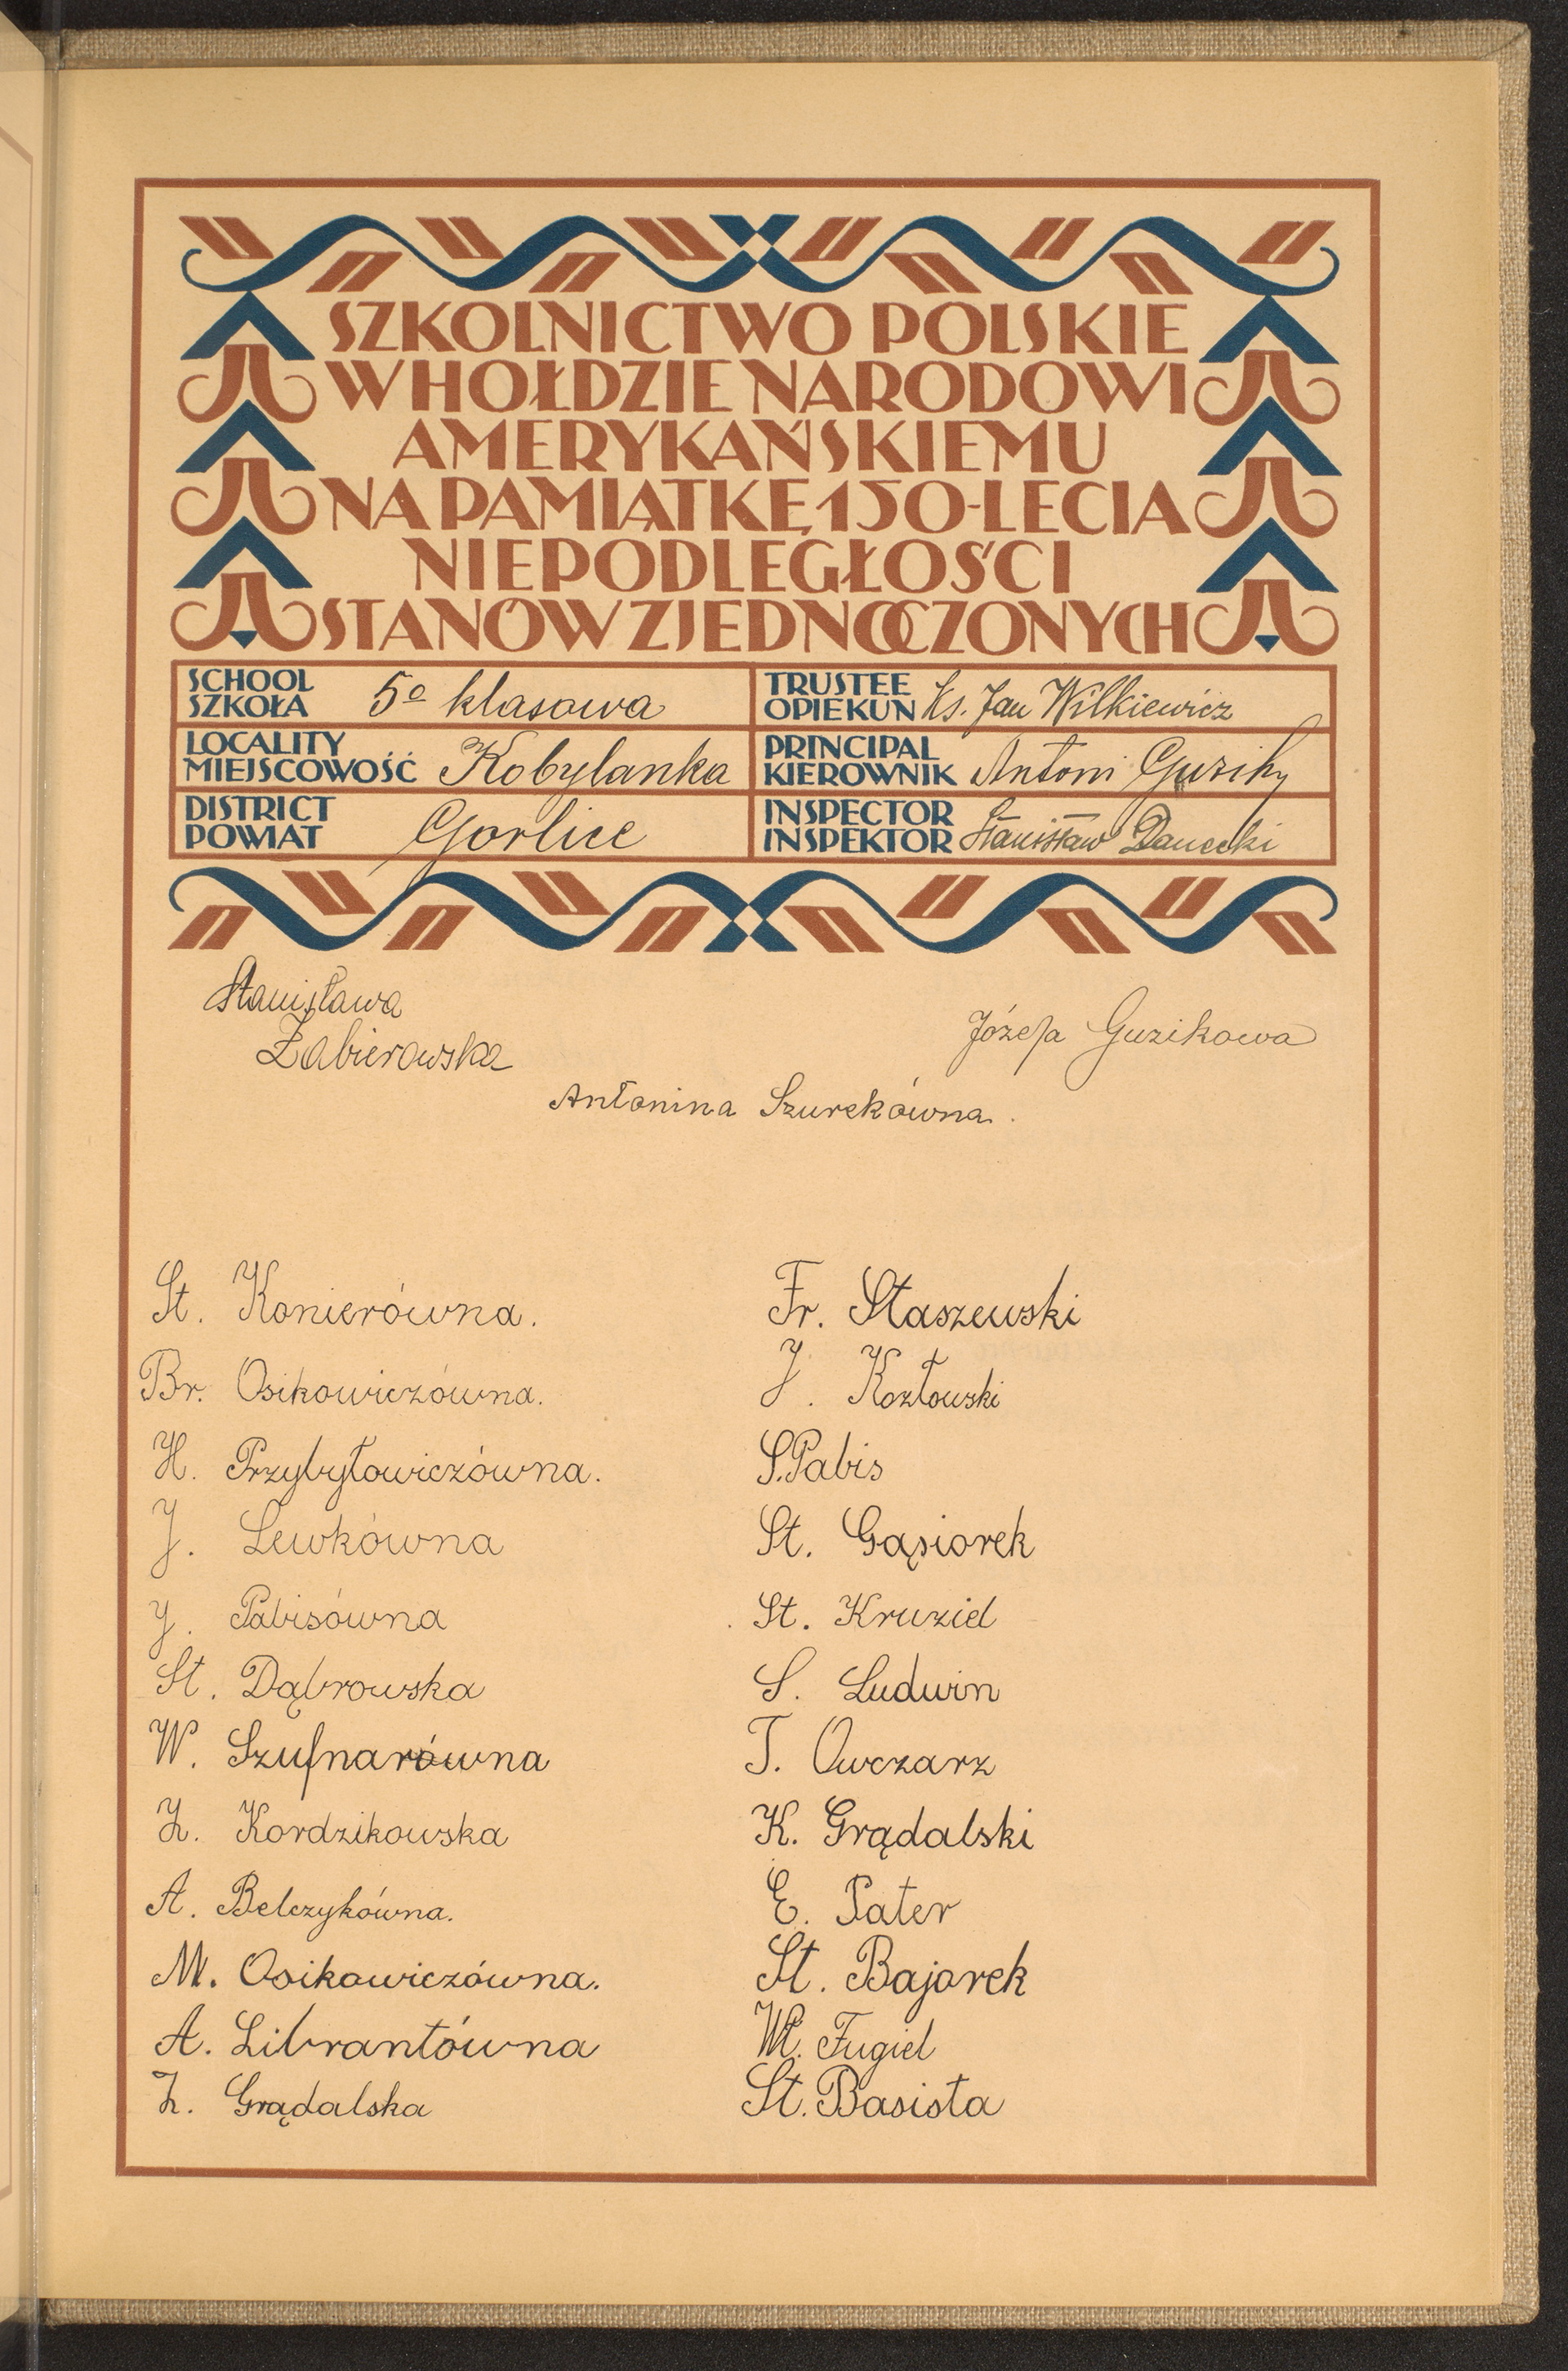 SZKOLNICTWO POLSKIE
W HOŁDZIE NARODOWI
AMERYKAŃSKIEMU
NA PAMIĄTKĘ 150-LECIA
NIEPODLEGŁOŚCI
STANÓW ZJEDNOCZONYCH
SCHOOL
SZKOŁA 5º klasowa
TRUSTEE
OPIEKUN Ks. Jan Wilkiewicz
LOCALITY
MIEJSCOWOŚĆ Kobylanka
PRINCIPAL
KIEROWNIK Antoni Guzik
DISTRICT
POWIAT Gorlice
INSPECTOR
INSPEKTOR Stanisław Danecki
Stanisława
Żabierowska
Józefa Guzikowa
Antonina Szurekówna.
St. Konierówna.
Br. Osikowiczówna.
H. Przybyłowiczówna.
J. Lewkówna
J. Pabisówna
St. Dąbrowska
W. Szufnarówna
Z. Kordzikowska
A. Belczykówna.
M. Osikowiczówna.
A. Librantówna
Z. Grądalska
Fr. Staszewski
J. Kozłowski
S. Pabis
St. Gąsiorek
St. Kruziel
S. Ludwin
T. Owczarz
K. Grądalski
E. Pater
St. Bajorek
Wł. Fugiel
St. Basista